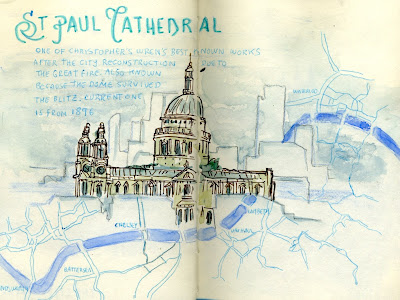 ST PAUL CATHEDRAL
ONE OF CHRISTOPHER'S WREN'S BEST KNOWN WORKS
AFTER THE CITY RECONSTRUCTION DUE TO
THE GREAT FIRE. ALSO KNOWN
BECAUSE THE DOME SURVIVED
THE BLITZ. CURRENT ONE
IS FROM
CHELSEY
LAMBETH
BATTERSEA